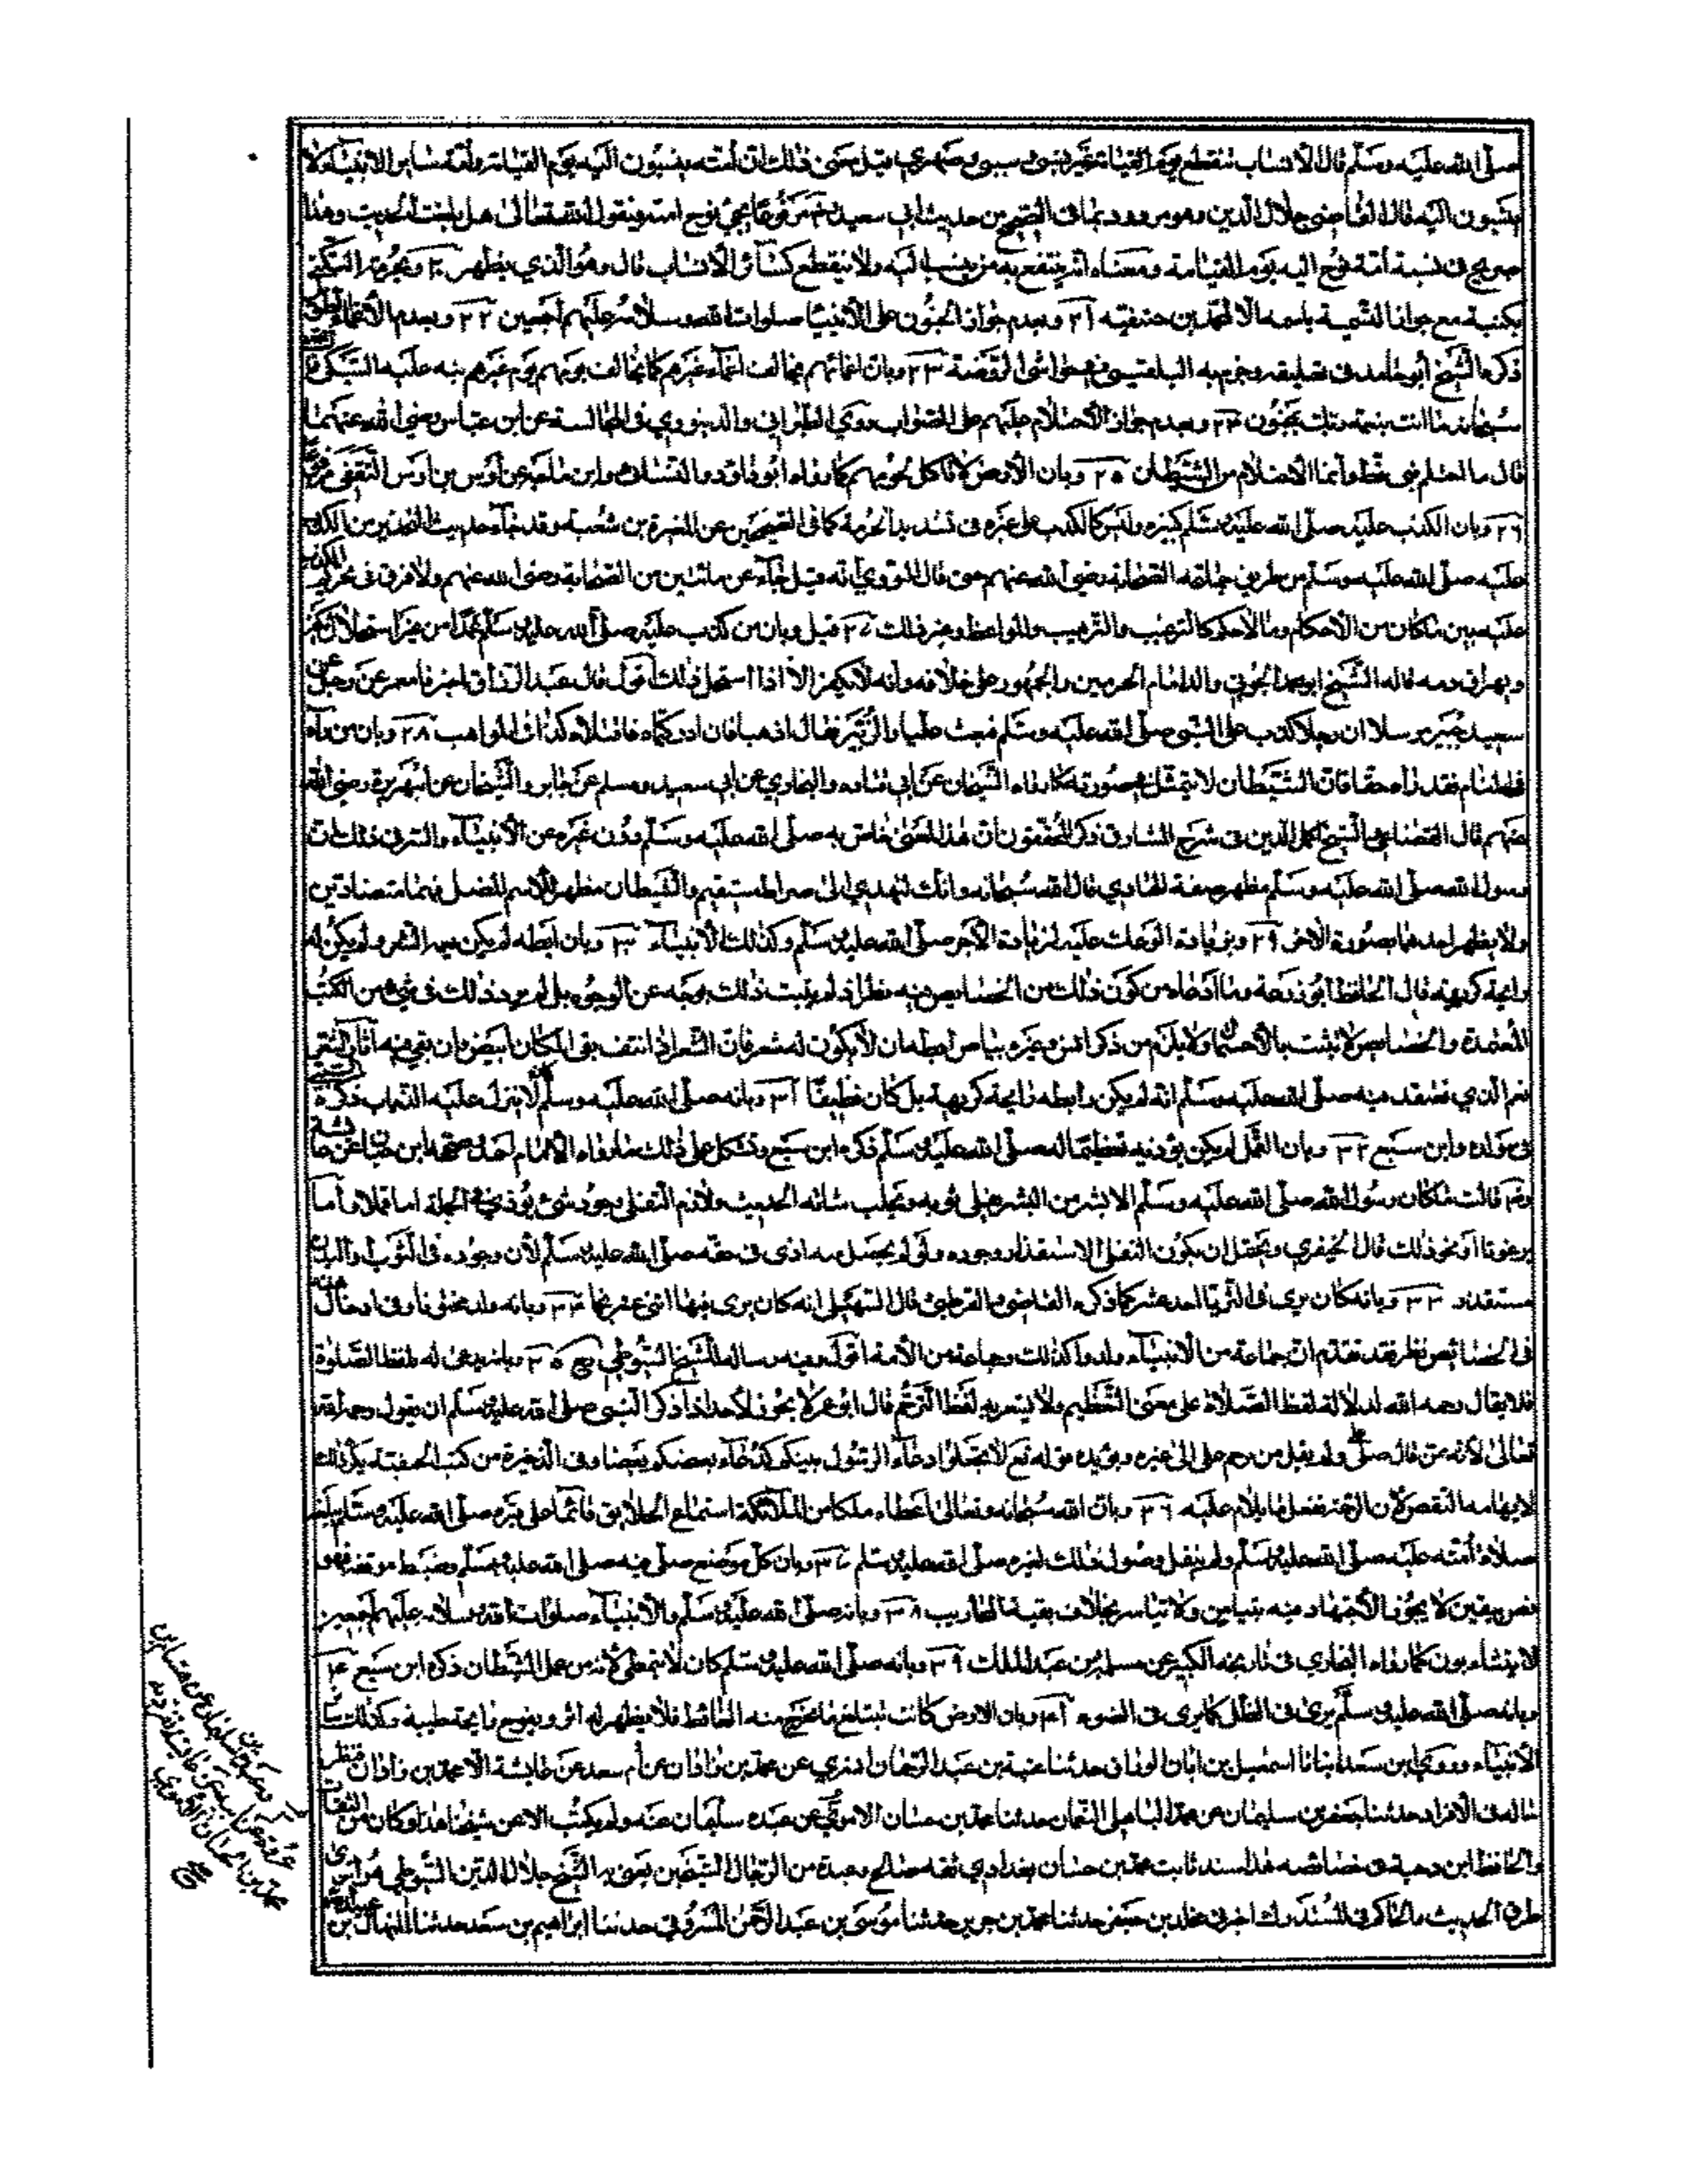 صلى الله عليه وسلم قال الانساب تنقطع يوم القيامة غير نسبي وسببي وصهري قيل معنى ذلك ان أمته ينسبون اليه يوم القيامة وأمة سائر الانبياء لا
ينسبون اليه قال القاضي جلال الدين وهو مردود بما في الصحيح من حديث ابي سعيد مرفوعا يجئ نوح امته فيقول الله تعالى هل بلغت الحديث وهذا
صريح في نسبة أمة نوح اليه يوم القيامة ومعناه انه ينتفع به من ينسب اليه ولا ينقطع كسائر الانساب قال وهو الذي يظهر ٢٠ وبحرمة التكني
بكنيته مع جواز التسمية باسمه الا لمحمد بن حنفيه ٢١ وبعدم جواز الجنون على الأنبيا صلوات الله وسلامه عليهم اجمعين ٢٢ وبعدم الأغماء
ذكره الشيخ أبو حامد في تعليقه وجزم به البلقيني في حواشي الروضة ٢٣ وبان اغمائهم يخالف اغماء غيرهم كما يخالف نومهم نوم غيرهم نبه عليه السبكي
سبحانه ما انت بنعمة ربك بمجنون ٢٤ وبعدم جواز الأحتلام عليهم على الصواب روى الطبراني والدينوري في المجالسة عن ابن عباس رضي الله عنهما
قال ما احتلم نبي قط وانما الاحتلام من الشيطان ٢٥ وبان الأرض لا تأكل لحومهم كما رواه ابو داود والنسائي وابن ماجه عن أوس بن اوس الثقفي
٢٦ وبان الكذب عليه صلى الله عليه وسلم كبيرة وليس كالكذب على غيره في تشديد الحرمة كما في الصحيحين عن المغيرة بن شعبة وقد جاء حديث التحذير من الكذب
عليه صلى الله عليه وسلم من طريق جماعة الصحابة رضي الله عنهم حتى قال النووي انه قيل جاء عن مائتين من الصحابة رضي الله عنهم ولا فرق في تحريم الكذب
عليه بين ما كان من الأحكام وما لا حكم كالترغيب والترهيب والمواعظ وغير ذلك ٢٧ قيل وبان من كذب عليه صلى الله عليه وسلم عمدا من غير استحلال يكفر
ويهراق دمه قاله الشيخ ابو محمد الجويني والد امام الحرمين والجمهور على خلافه وانه لا يكفر الا اذا استحل ذلك أقول قال عبد الرزاق اخبرنا معمر عن رجل عن
سعيد بن جبير مرسلا ان رجلا كذب على النبي صلى الله عليه وسلم فبعث عليا والزبير فقال اذهبا فان ادركتماه فاقتلاه كذا في المواهب ٢٨ وبان من رآه
في المنام فقد رآه حقا فان الشيطان لا يتمثل في صورته كما رواه الشيخان عن ابي قتاده والبخاري عن ابي سعيد ومسلم عن جابر والشيخان عن ابي هريرة رضي الله
عنهم قال القضاعي الشيخ اكمل الدين في شرح المشارق ذكر المحققون أن هذا المعنى خاص به صلى الله عليه وسلم دون غيره من الأنبياء والسر في ذلك ان
رسول الله صلى الله عليه وسلم مظهر صفة الهادي قال الله سبحانه وانك لتهدي الى صراط مستقيم والشيطان مظهر للاسم المضل فهما متضادين
ولا يظهر احدهما بصورة الاخر ٢٩ وبزيادة الوعك عليه لزيادة الأجر صلى الله عليه وسلم وكذلك الأنبياء ٣٠ وبان ابطه لم يكن به الشعر ولم يكن له
رايحة كريهة قال الحافظ ابو زرعة وما ادعاه من كون ذلك من الخصايص فيه نظر اذ لم يثبت ذلك بوجه من الوجوه بل لم يرد ذلك في شيء من الكتب
المعتمدة والخصايص لا تثبت بالأحتمال ولا يلزم من ذكر انس وغيره بياض ابطه ان لا يكون له شعر فان الشعر اذا انتف بقي المكان ابيض وان بقي فيه آثار الشعر
نعم الذي نعتقد فيه صلى الله عليه وسلم انه لم يكن لابطه رايحة كريهة بل كان نظيفا ٣١ وبانه صلى الله عليه وسلم لا ينزل عليه الذباب ذكره
في مولده وابن سبع ٣٢ وبان القمل لم يكن يؤذيه تعظيما له صلى الله عليه وسلم ذكره ابن سبع ويشكل على ذلك ما رواه الامام احمد وصححه ابن حبان عن عائشة
رضي قالت ما كان رسول الله صلى الله عليه وسلم الا بشر من البشر يفلي ثوبه ويحلب شاته الحديث ولازم التفلي وجود شئ يؤذي في الجملة اما قملا واما
برغوثا أو نحو ذلك قال الخيضري ويحتمل ان يكون التفلي الاستقذار وجوده ولو لم يحصل منه اذى في حقه صلى الله عليه وسلم لأن وجوده في الثوب والبدن
مستقذر ٣٣ وبانه كان يرى في الثريا احد عشر كما ذكره القاضي والقرطبي قال السهيلي انه كان يرى فيها اثني عشر نجما ٣٤ وبانه ولد مختونا وفي ادخال هذه
في الخصايص نظر فقد تقدم ان جماعة من الانبياء ولدوا كذلك وجماعة من الأمة اقول وفيه رساله للشيخ السيوطي ٣٥ وبانه يدعى له بلفظ الصلوة
فلا يقال رحمه الله لدلالة لفظ الصلاة على معنى التعظيم ولا يشعر به لفظ الترحم قال ابو عمر لا يجوز لأحد اذا ذكر النبي صلى الله عليه وسلم ان يقول رحمه الله
تعالى لأنه من قال صلى ولم يقل من رحم علي الى غيره ويؤيده قوله تع لا تجعلوا دعاء الرسول بينكم كدعاء بعضكم بعضا وفي الذخيرة من كتب الحنفية يكره ذلك
لايهامه النقص لأن الرحمة بفعل ما يلام عليه ٣٦ وبان الله سبحانه وتعالى اعطاه ملكا من الملائكة استماع الخلايق قائما على قبره صلى الله عليه وسلم يبلغه
صلاة أمته عليه صلى الله عليه وسلم ولم ينقل وصول ذلك لغيره صلى الله عليه وسلم ٣٧ وبان كل موضع صلى فيه صلى الله عليه وسلم وضبط موقفه فهو
نص بيقين لا يجوز الأجتهاد فيه بتيامن ولا تياسر بخلاف بقية المحاريب ٣٨ وبانه صلى الله عليه وسلم والأنبياء صلوات الله وسلامه عليهم اجمعين
لا يتثاءبون كما رواه البخاري في تاريخه الكبير عن مسلم بن عبد الملك ٣٩ وبانه صلى الله عليه وسلم كان لا يتمطى لأنه من عمل الشيطان ذكره ابن سبع ٤٠
وبانه صلى الله عليه وسلم يرى في الظل كما يرى في الضوء ٤١ وبان الارض كانت تبتلع ما يخرج منه الغائط فلا يظهر له اثر ويفوح رايحة طيبة وكذلك سائر
الأنبياء وروى ابن سعد انبانا اسمعيل بن ابان الوراق حدثنا عنبسة بن عبد الرحمان عن محمد بن زاذان عن أم سعد عن عايشة الا محمد بن زاذان
في الافراد حدثنا جعفر بن سليمان عن محمد الباهلي النعمان حدثنا محمد بن حسان الاموي عن عبده سليمان عنه ولم يكتب الا من شيخنا هذا وكان من الثقات
والحافظ ابن دحية في خصائصه هذا سند ثابت محمد بن حسان بغدادي ثقه صالح وعبدة من الرجال الشيخين يعني به الشيخ جلال الدين السيوطي
طرق الحديث والحاكم في المستدرك اخبرني مخلد بن جعفر حدثنا محمد بن جرير حدثنا موسى بن عبد الرحمن المسروقي حدثنا ابراهيم بن سعد حدثنا المنهال بن